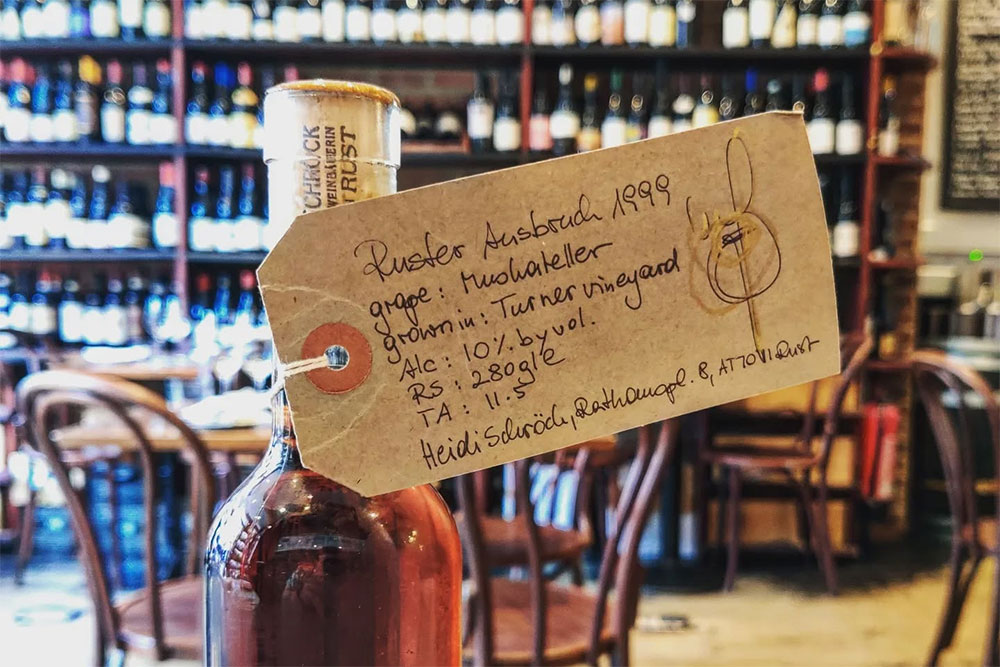 SCHRÖCK
WEINBÄUERIN
RUST
Ruster Ausbruch 1999
grape: Muskateller
grown in: Turner vineyard
Alc: 10%. by vol.
RS: 280g/e
TA: 11.5
Heidi Schröck, Rathauspl. 8, AT7071 Rust